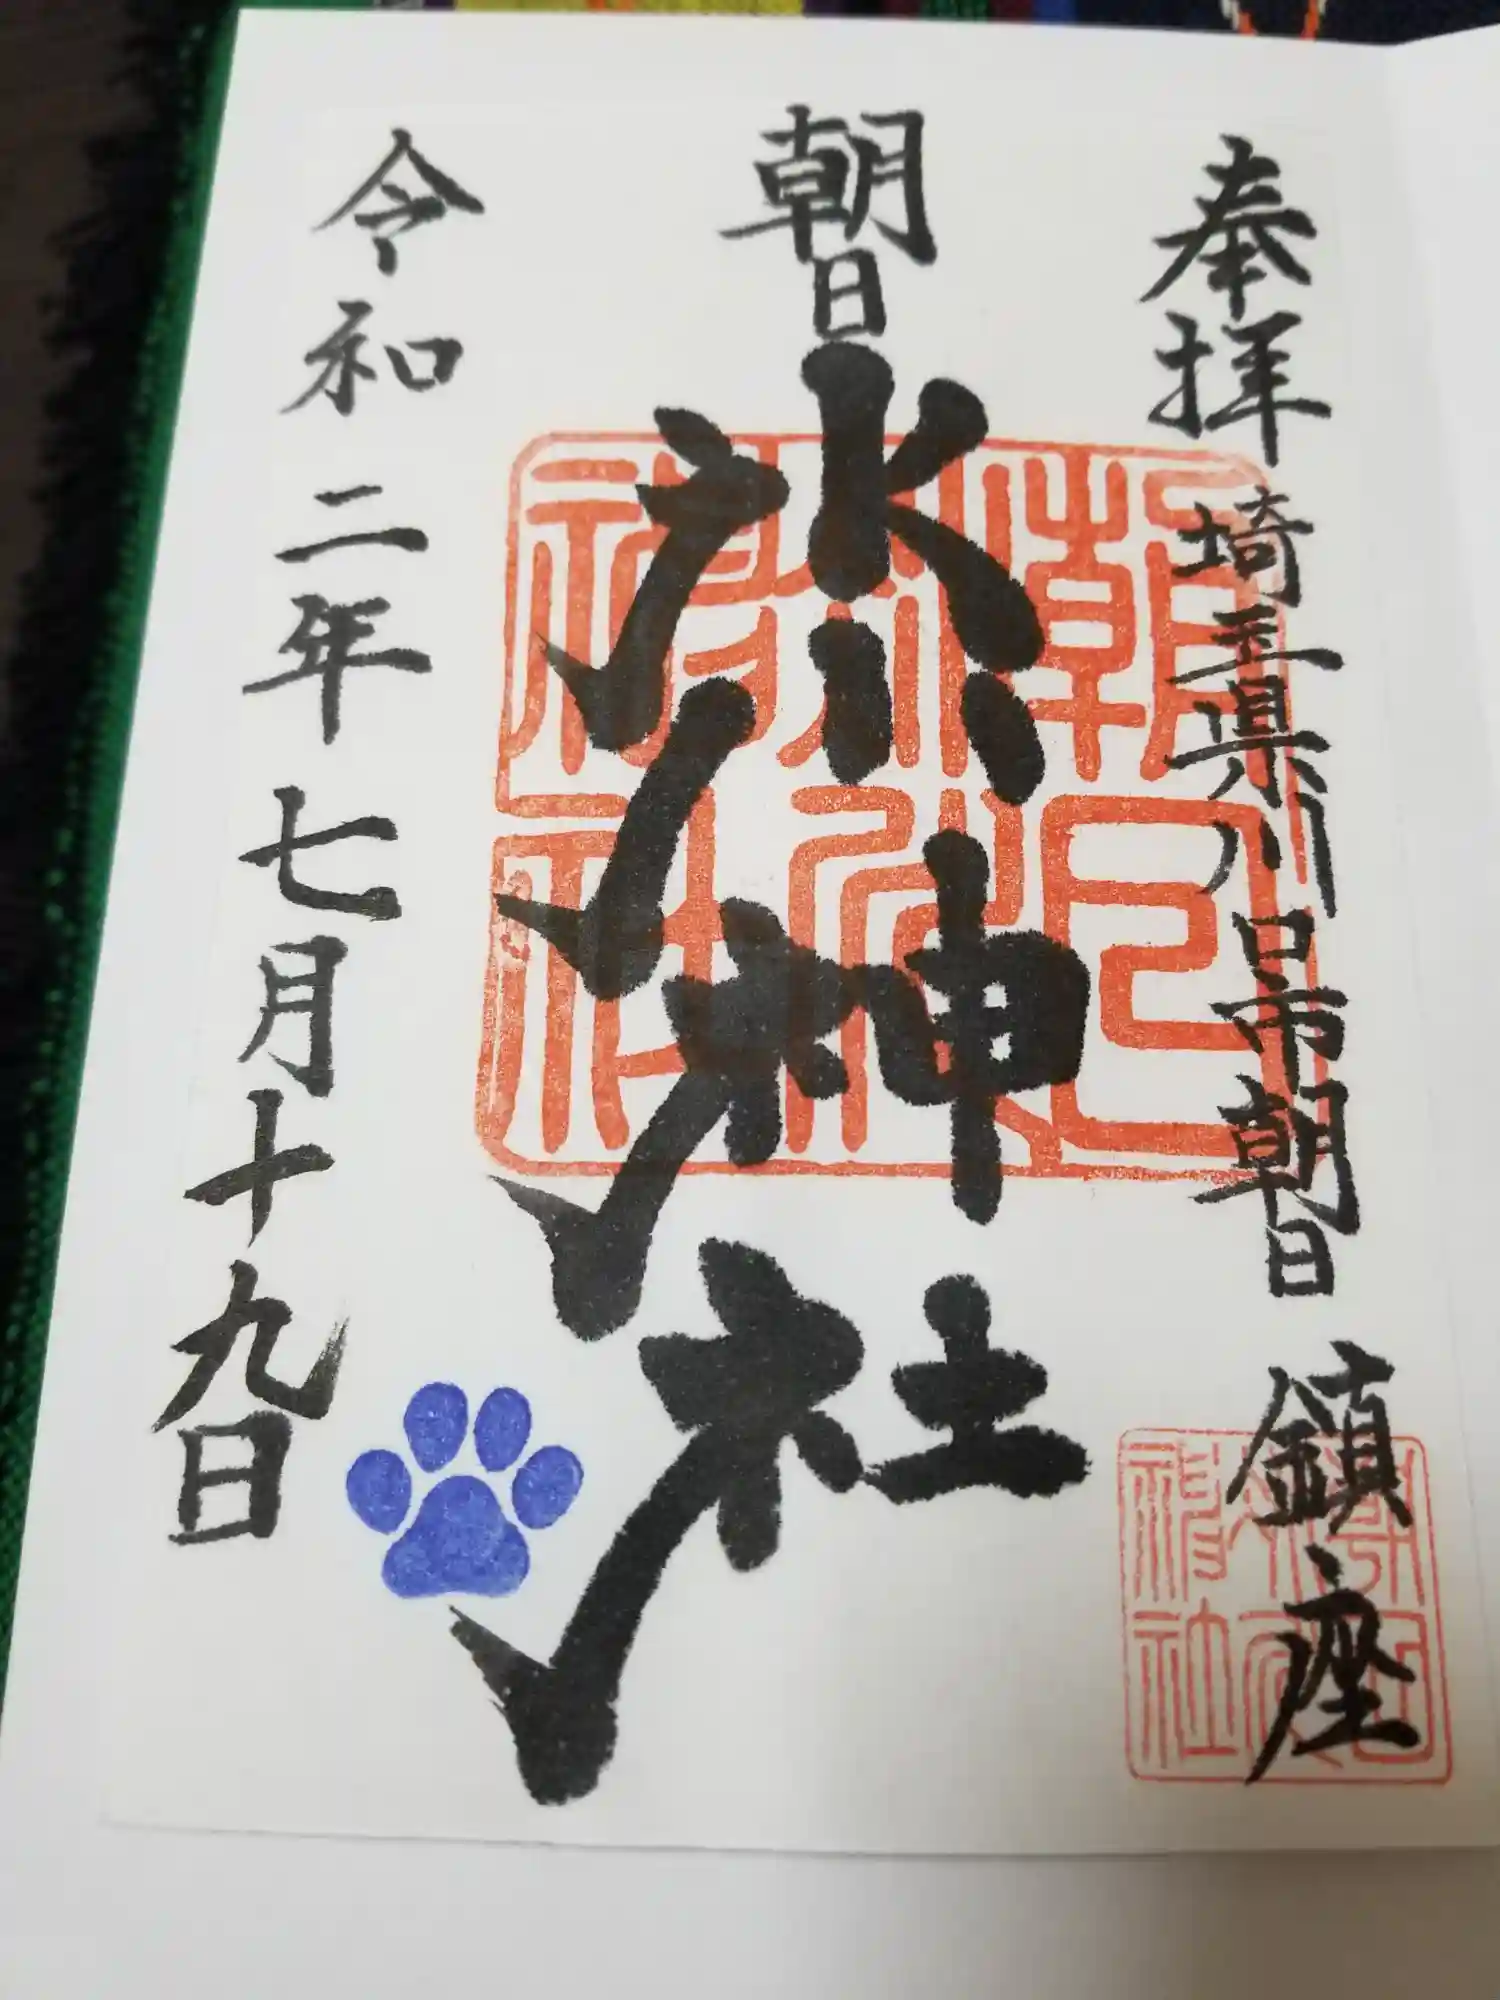 奉拝 埼玉県川口市朝日 鎮座
朝日氷川神社
令和二年七月十九日
朝日
氷川
神社